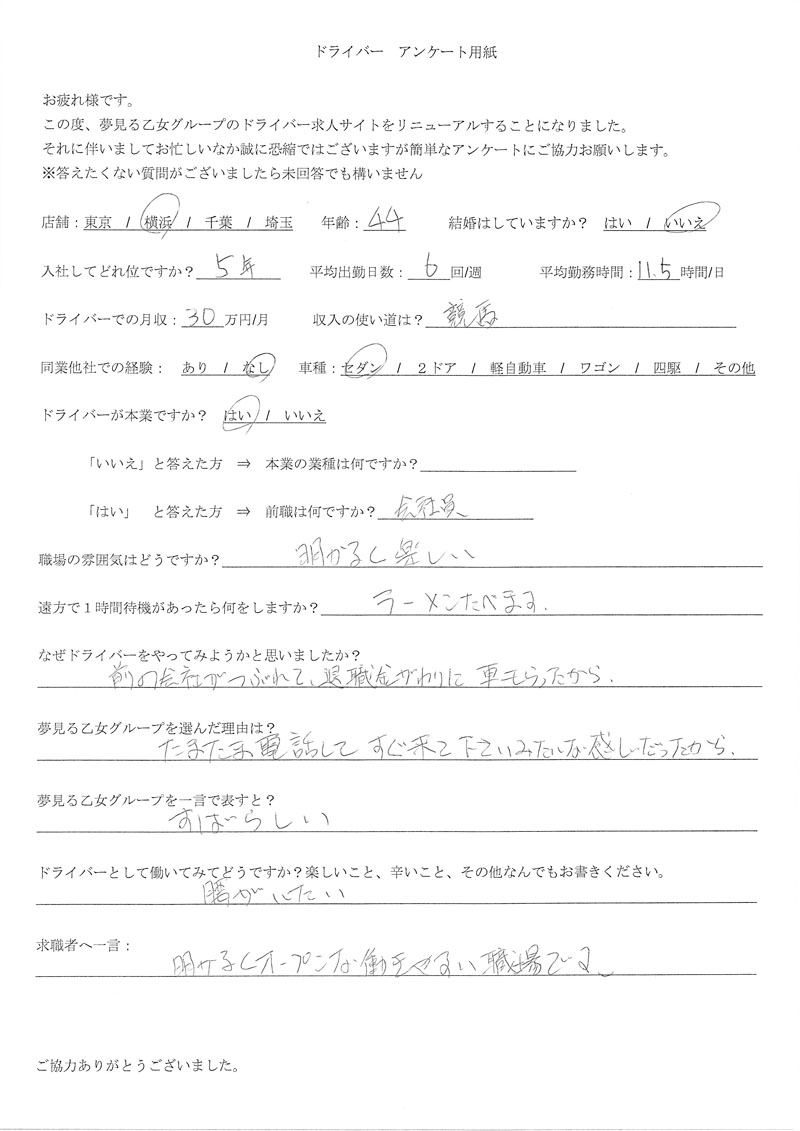 ドライバー　アンケート用紙
お疲れ様です。
この度、夢見る乙女グループのドライバー求人サイトをリニューアルすることになりました。
それに伴いましてお忙しいなか誠に恐縮ではございますが簡単なアンケートにご協力お願いします。
※答えたくない質問がございましたら未回答でも構いません
店舗：東京　/　横浜　/　千葉　/　埼玉　　年齢：44　　結婚はしていますか？　はい　/　いいえ
入社してどれ位ですか？ 5年　　平均出勤日数：6 回/週　　平均勤務時間：11.5 時間/日
ドライバーでの月収：30 万円/月　　収入の使い道は？ 競馬
同業他社での経験：　あり　/　なし　　車種：セダン　/　２ドア　/　軽自動車　/　ワゴン　/　四駆　/　その他
ドライバーが本業ですか？　はい　/　いいえ
「いいえ」と答えた方　⇒　本業の業種は何ですか？
「はい」　と答えた方　⇒　前職は何ですか？ 会社員
職場の雰囲気はどうですか？ 明かるく楽しい
遠方で１時間待機があったら何をしますか？ ラーメンたべます.
なぜドライバーをやってみようかと思いましたか？
前の会社がつぶれて、退職金がわりに 車もらったから.
夢見る乙女グループを選んだ理由は？
たまたま電話して すぐ来て下さいみたいな感じだったから.
夢見る乙女グループを一言で表すと？
すばらしい
ドライバーとして働いてみてどうですか？楽しいこと、辛いこと、その他なんでもお書きください。
腰がいたい
求職者へ一言：
明かるくオープンな働きやすい職場です
ご協力ありがとうございました。